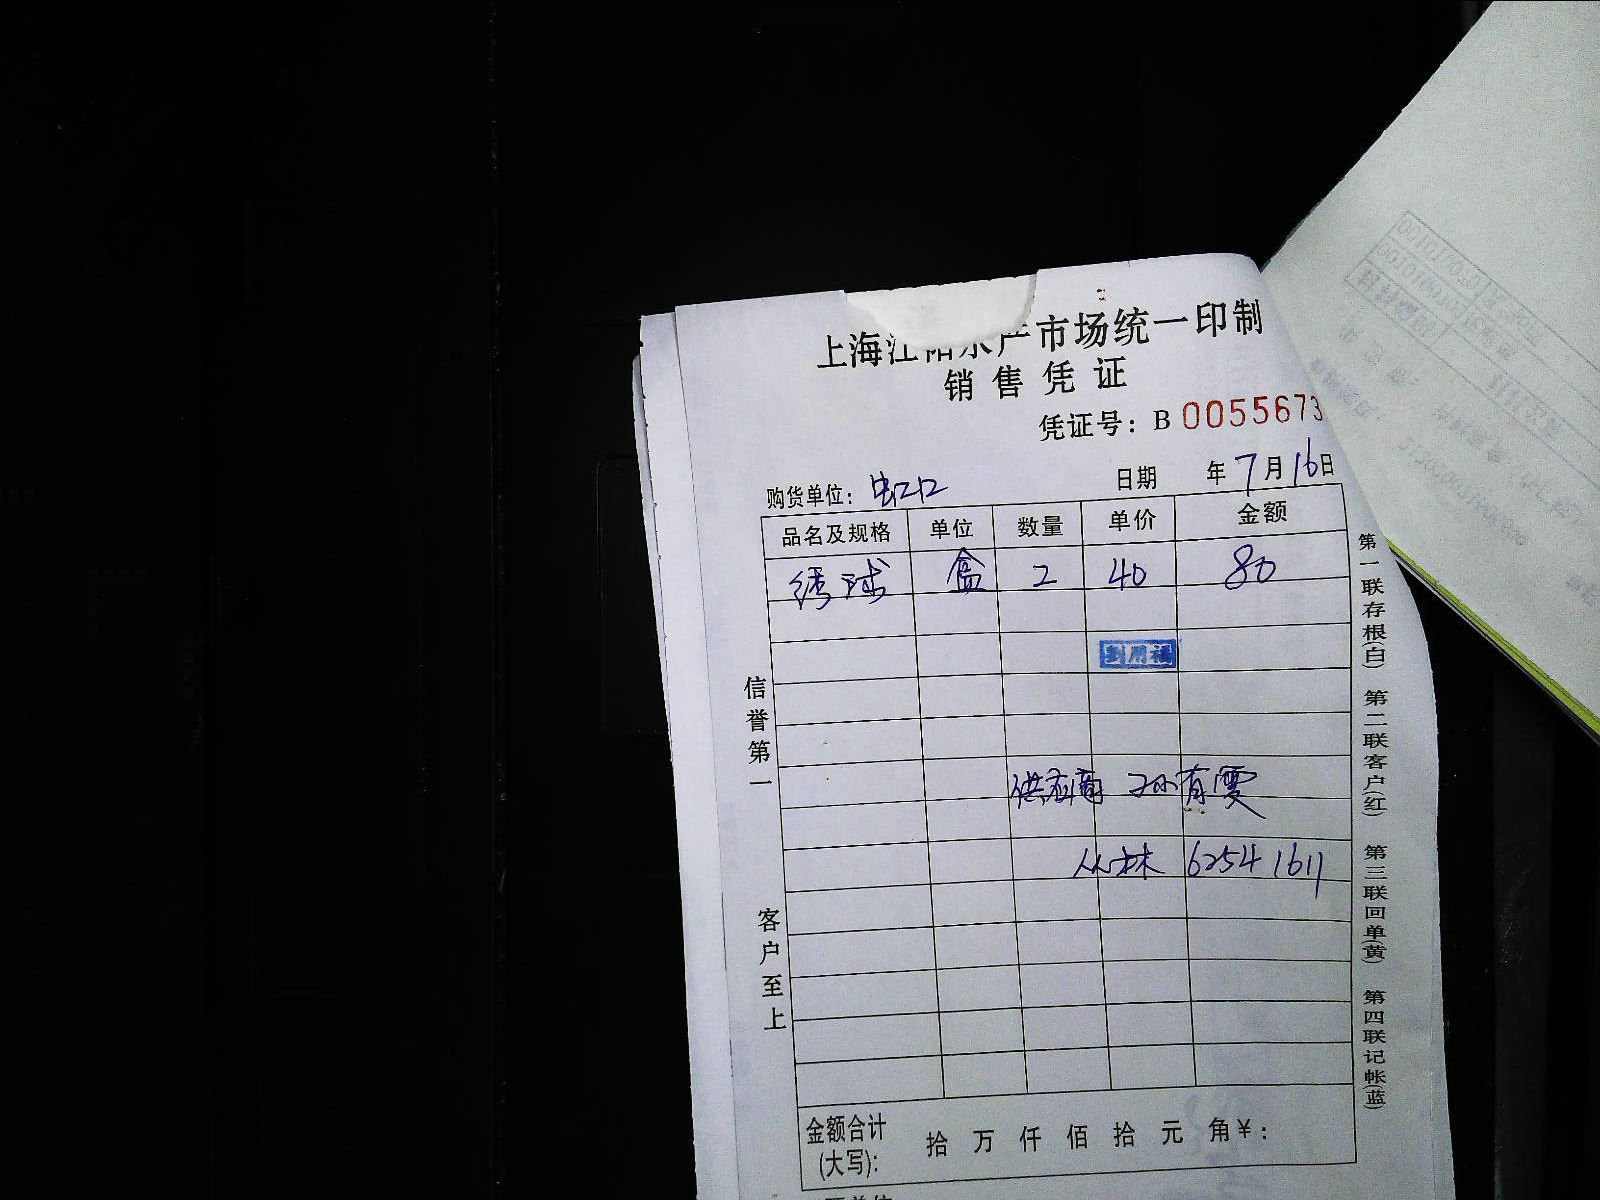 上海江阳水产市场统一印制
销售凭证
凭证号：B 0055673
购货单位：虹口 日期 年 7 月 16 日
品名及规格 单位 数量 单价 金额
绣球 盒 2 40 80
供应商 孙有雯
丛林 62541611
信誉第一
客户至上
第一联存根(白) 第二联客户(红) 第三联回单(黄) 第四联记帐(蓝)
金额合计 拾 万 仟 佰 拾 元 角 ¥：
(大写)：